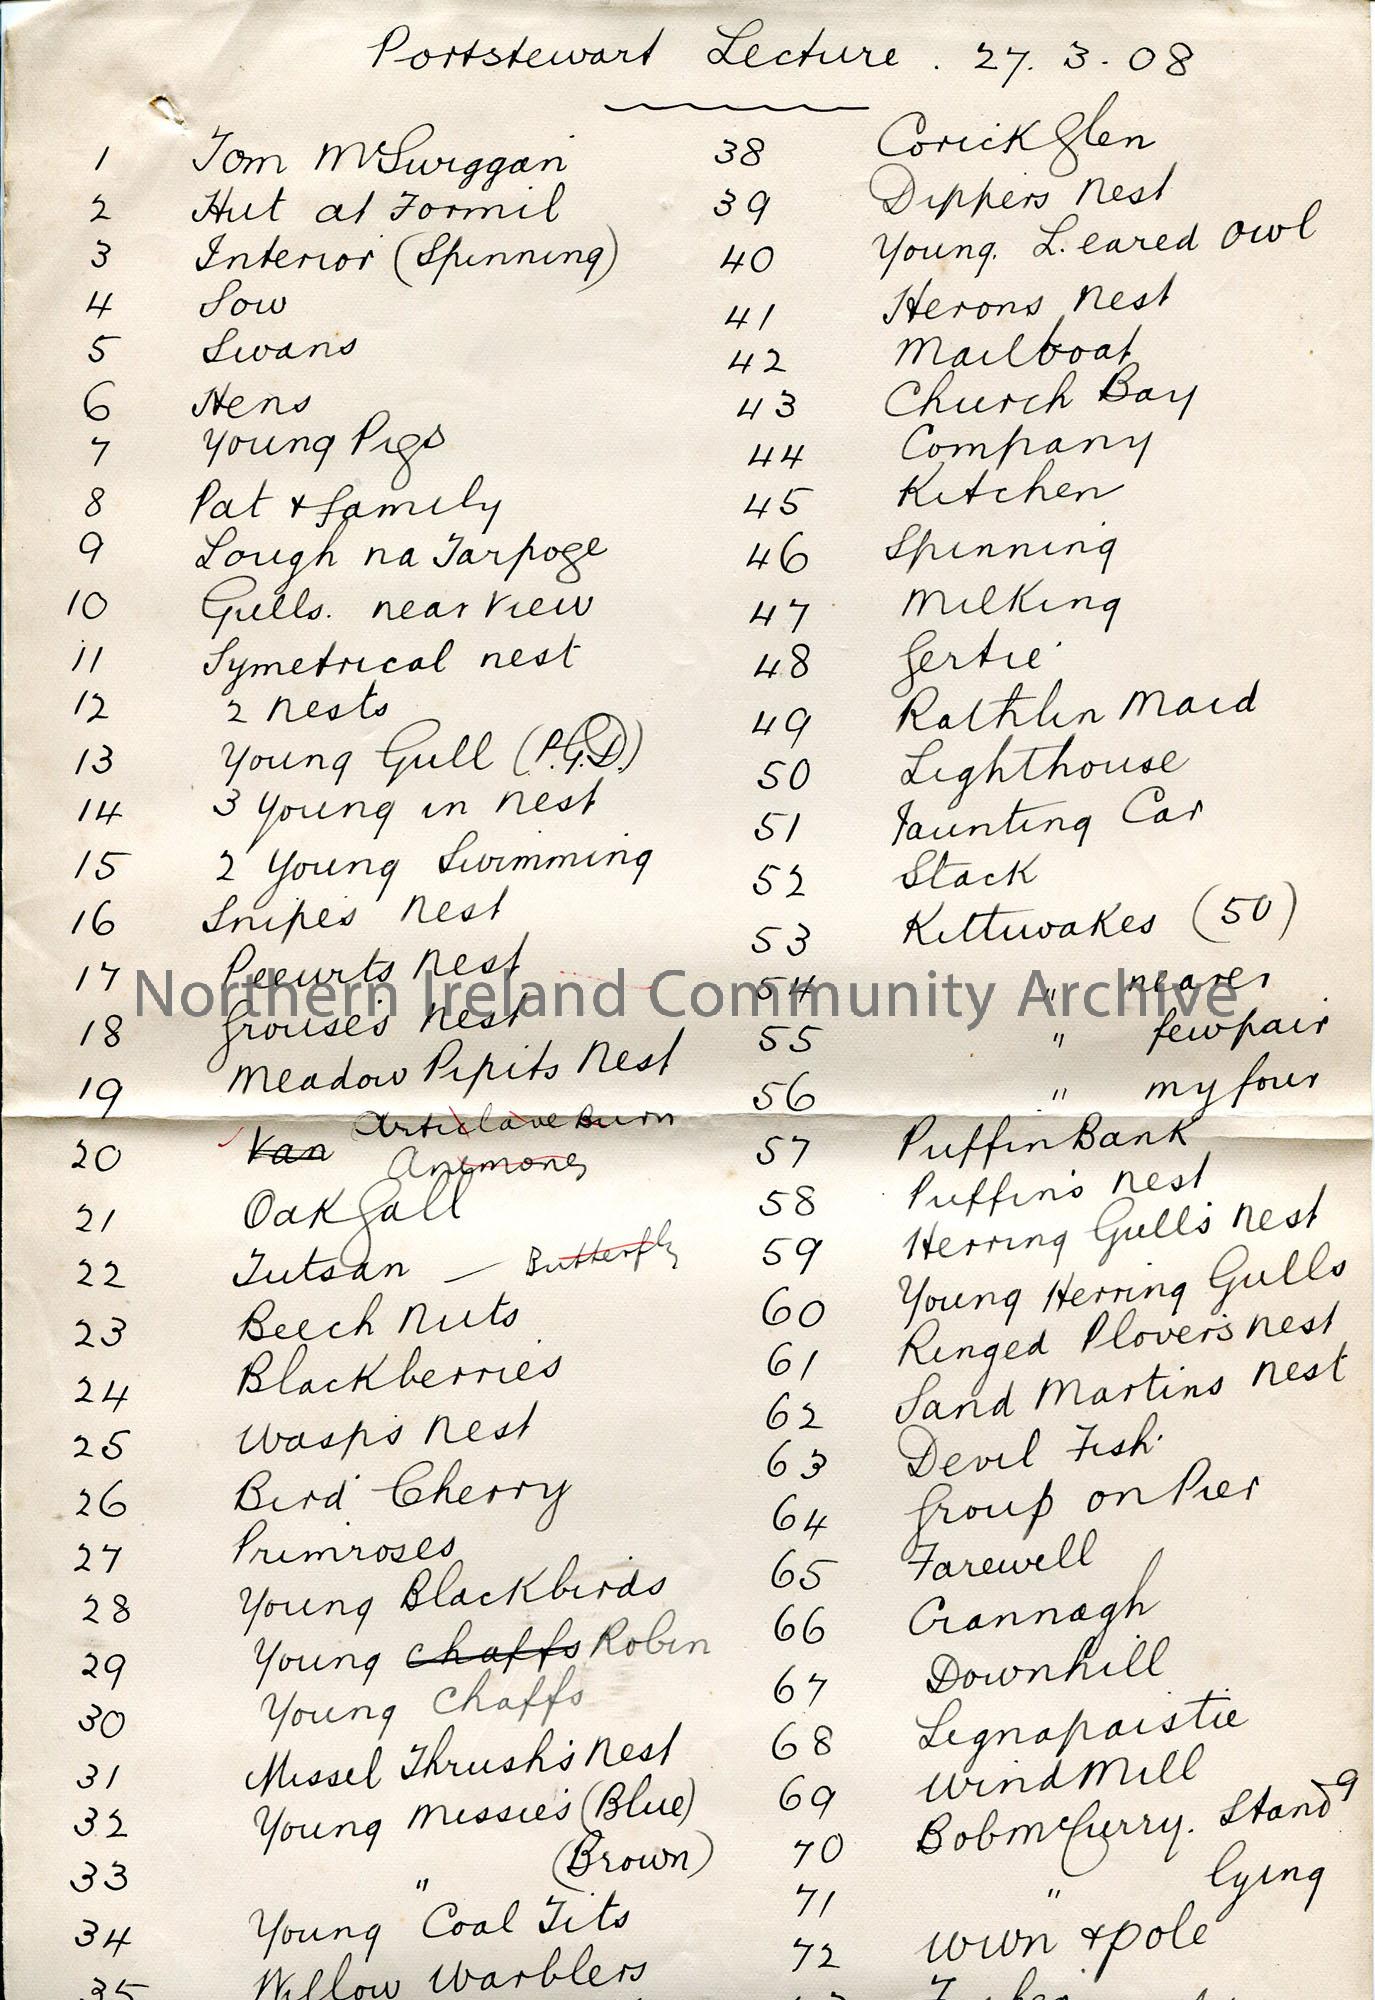 Portstewart Lecture. 27.3.08
1 Tom McSwiggan
2 Hut at Formil
3 Interior (Spinning)
4 Sow
5 Swans
6 Hens
7 Young Pigs
8 Pat & family
9 Lough na Tarpoge
10 Gulls. near view
11 Symetrical nest
12 2 nests
13 Young Gull (P.G.D.)
14 3 Young in nest
15 2 Young Swimming
16 Snipe's nest
17 Peewits nest
18 Grouse's nest
19 Meadow Pipits Nest
Articlave Burn
20 Van Anemones
21 Oak Gall
22 Tutsan — Butterfly
23 Beech Nuts
24 Blackberries
25 Wasp's nest
26 Bird Cherry
27 Primroses
28 Young Blackbirds
29 Young chaffs Robin
30 Young Chaffs
31 Missel Thrush's Nest
32 Young Missie's (Blue)
33 " (Brown)
34 Young Coal Tits
35 Willow Warblers
38 Corick Glen
39 Dippers Nest
40 Young. L. eared owl
41 Herons nest
42 Mailboat
43 Church Bay
44 Company
45 Kitchen
46 Spinning
47 Milking
48 Gertie
49 Rathlin Maid
50 Lighthouse
51 Jaunting Car
52 Stack
53 Kittiwakes (50)
54 " nearer
55 " few pair
56 " my four
57 Puffin Bank
58 Puffin's nest
59 Herring Gull's nest
60 Young Herring Gulls
61 Ringed Plover's nest
62 Sand Martins nest
63 Devil Fish
64 Group on Pier
65 Farewell
66 Crannagh
67 Downhill
68 Lignapaistie
69 Wind Mill
70 Bob McCurry. Standg
71 " lying
72 WWn & pole
Northern Ireland Community Archive